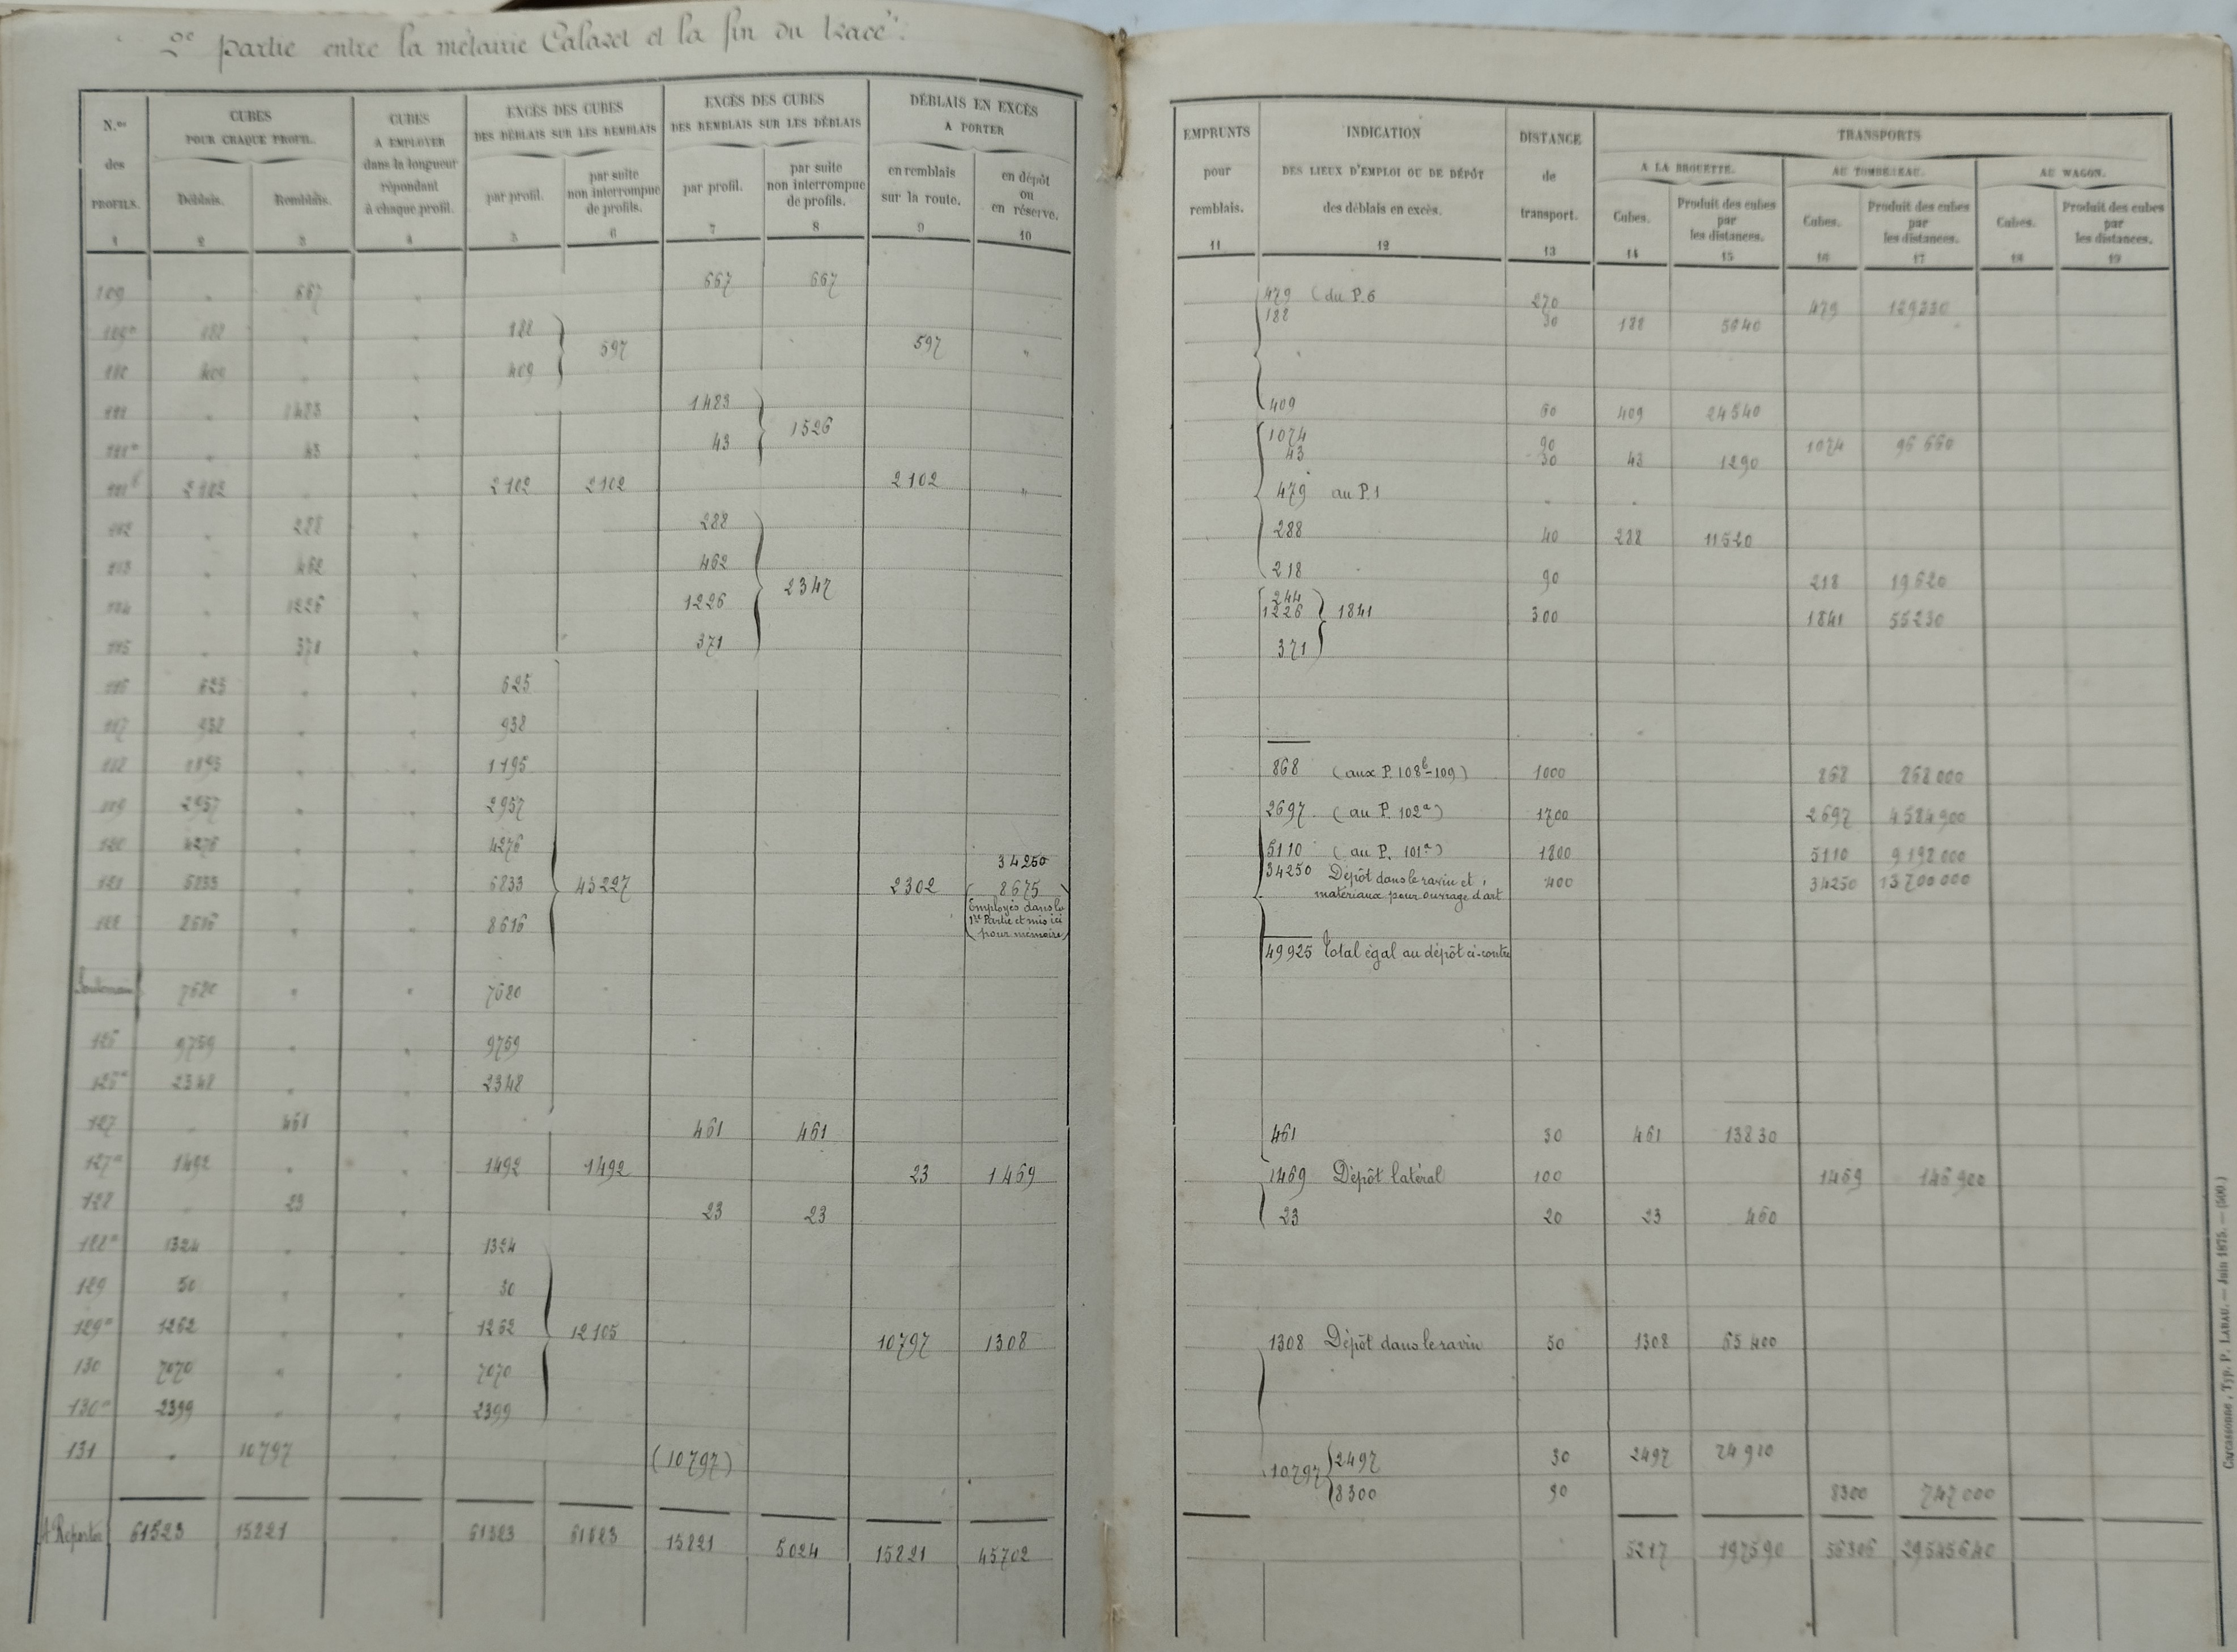 2e partie entre la métairie Calavet et la fin du tracé.
N.os des PROFILS. 1
CUBES POUR CHAQUE PROFIL.
Déblais. 2
Remblais. 3
CUBES A EMPLOYER dans la longueur répondant à chaque profil. 4
EXCÈS DES CUBES DES DÉBLAIS SUR LES REMBLAIS
par profil. 5
par suite non interrompue de profils. 6
EXCÈS DES CUBES DES REMBLAIS SUR LES DÉBLAIS
par profil. 7
par suite non interrompue de profils. 8
DÉBLAIS EN EXCÈS A PORTER
en remblais sur la route. 9
en dépôt ou en réserve. 10
109 " 667 " 667 667
109a 188 " " 188
597 597 "
110 409 " " 409
111 " 1483 " 1483
1526
111a " 43 " 43
111b 2102 " " 2102 2102 2102 "
112 " 288 " 288
113 " 462 " 462
2347
114 " 1226 " 1226
115 " 371 " 371
116 625 " " 625
117 938 " " 938
118 1195 " " 1195
119 2957 " " 2957
120 4276 " " 4276
34250
121 6833 " " 6833 45227 2302 8675
Employés dans la 1re Partie et mis ici pour mémoire
122 8616 " " 8616
Souterrain 7680 " " 7680
126 9759 " " 9759
126a 2348 " " 2348
127 " 461 " 461 461
127a 1492 " " 1492 1492 23 1469
128 " 23 " 23 23
128a 1324 " " 1324
129 50 " " 50
129a 1262 " " 1262 12105 10797 1308
130 7070 " " 7070
130a 2399 " " 2399
131 " 10797 (10797)
A Reporter 61523 15821 " 61523 61523 15821 5024 15821 45702
EMPRUNTS pour remblais. 11
INDICATION DES LIEUX D'EMPLOI OU DE DÉPÔT des déblais en excès. 12
DISTANCE de transport. 13
TRANSPORTS
A LA BROUETTE.
Cubes. 14
Produit des cubes par les distances. 15
AU TOMBEREAU.
Cubes. 16
Produit des cubes par les distances. 17
AU WAGON.
Cubes. 18
Produit des cubes par les distances. 19
479 (du P. 6 270 479 129330
188 30 188 5640
409 60 409 24540
1074 90 1074 96660
43 30 43 1290
479 au P. 1
288 40 288 11520
218 90 218 19620
244
1226 1841 300 1841 55230
371
868 (aux P. 108b-109) 1000 868 868000
2697 (au P. 102a) 1700 2697 4584900
5110 (au P. 101a) 1800 5110 9198000
34250 Dépôt dans le ravin et 400 34250 13700000
matériaux pour ouvrage d'art
49925 Total égal au dépôt ci-contre
461 30 461 13830
1469 Dépôt latéral 100 1469 146900
23 20 23 460
1308 Dépôt dans le ravin 50 1308 65400
10797 2497 30 2497 74910
8300 90 8300 747000
5217 197590 56306 29545640
Carcassonne, Typ. P. LABAU. — Juin 1875. — (500.)